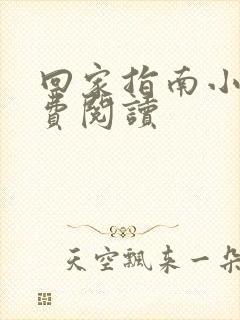 回家指南小
費閱讀
天空飄来一朵